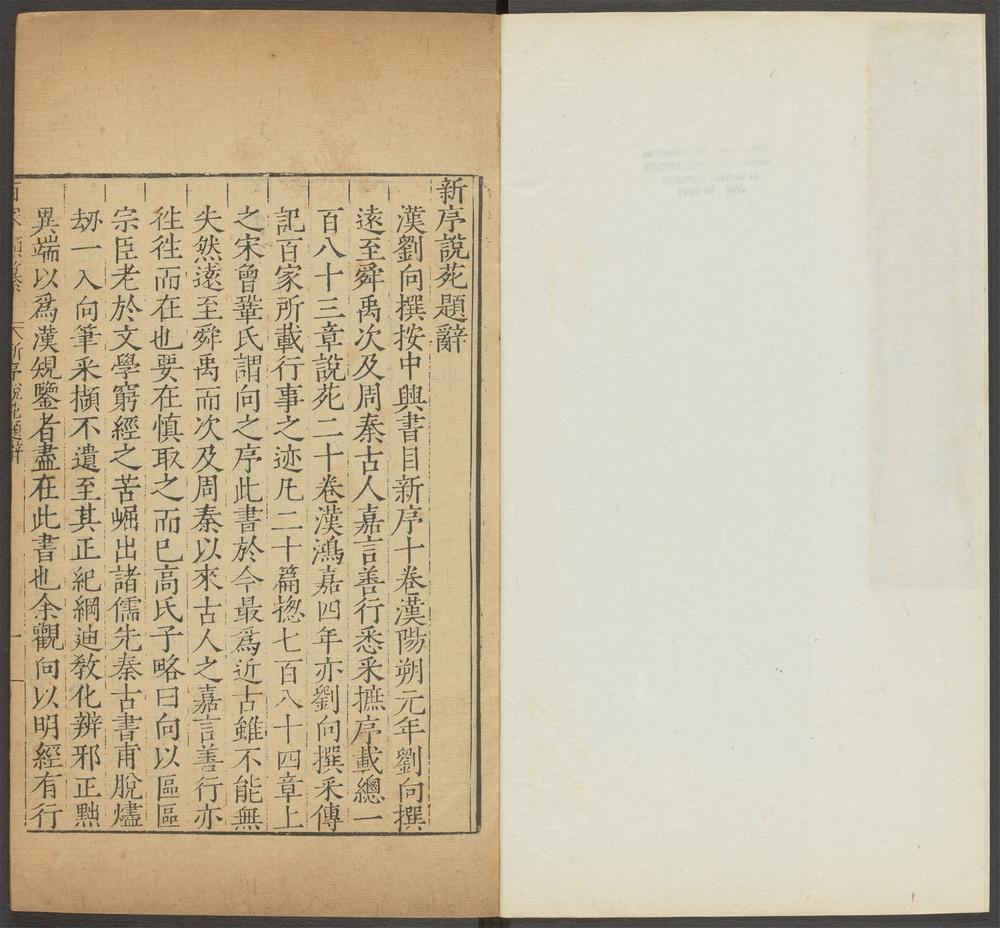 新序說苑題辭
漢劉向撰按中興書目新序十卷漢陽朔元年劉向撰
遠至舜禹次及周秦古人嘉言善行悉采摭序載總一
百八十三章說苑二十卷漢鴻嘉四年亦劉向撰采傳
記百家所載行事之迹凡二十篇揔七百八十四章上
之宋曾鞏氏謂向之序此書於今最爲近古雖不能無
失然遠至舜禹而次及周秦以來古人之嘉言善行亦
徃徃而在也要在慎取之而已高氏子略曰向以區區
宗臣老於文學窮經之苦崛出諸儒先秦古書甫脫燼
刼一入向筆采擷不遺至其正紀綱迪敎化辨邪正黜
異端以爲漢規鑒者盡在此書也余觀向以明經有行
新序說苑題辭
一